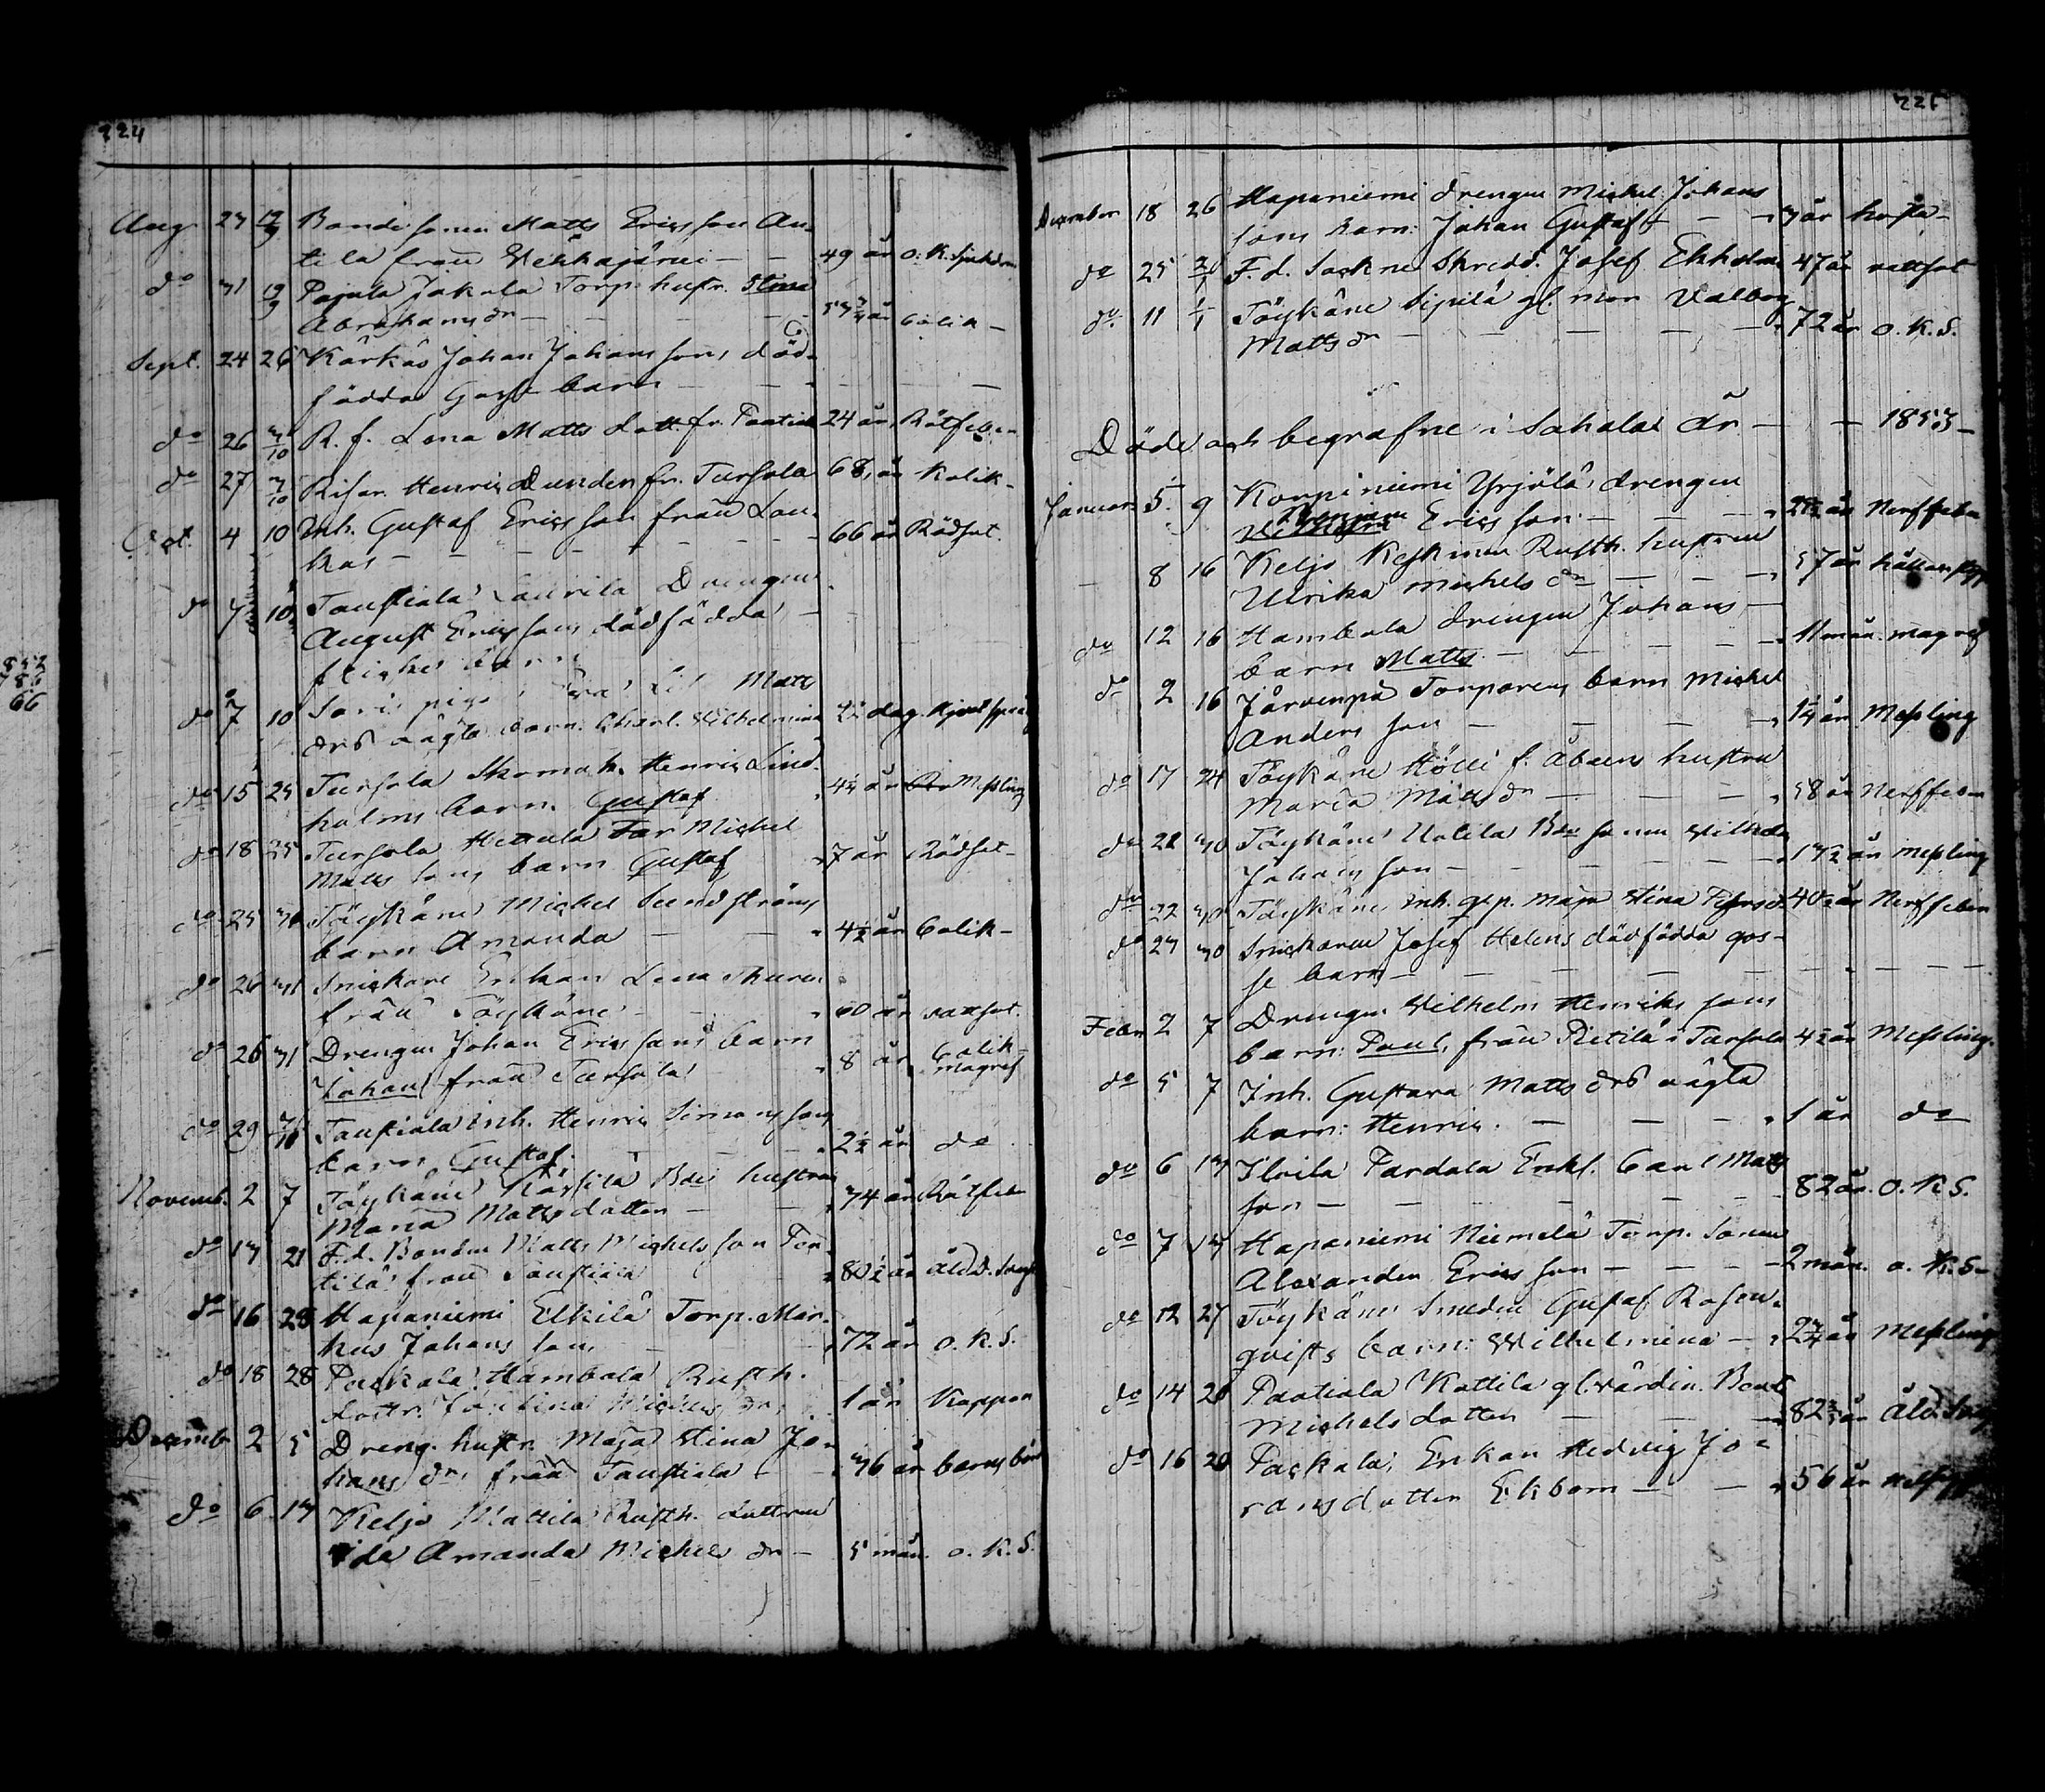 224
Aug 27 12/9 Bonde sonen Matts Ericsson An-
tila från Vekkajärvi — — 49 år o. K. Sjukdom
do 31 12/9 Pajula Jakola Torp. hustr. Stina
Abrahams dr — — 53 3/4 år Colik —
Sept. 24 26 Kärkäs Johan Johans sons död-
födda Gosse barn — — —
do 26 3/10 R. f. Lena Matts dott. fr. Paatiala 24 år Rötfeber
do 27 3/10 Henric Dunder fr. Tursola 68 år Kolik-
Oct. 4 10 Inh. Gustaf Ericsson från Lau-
kas — — — 66 år Rödsot.
do 7 10 Taustiala Laurila Drengen
August Ericssons dödfödda —
flicke barn
do 7 10 Matts
drs oägta barn. Charl. Vilhelmina dag.
do 15 25 Tursola Skomak. Henric Lind-
holms barn. Gustaf 4 1/4 år Messling
do 18 25 Tursola Heikkala Michel
Matts sons barn Gustaf 7 år Rödsot-
do 25 31 Töykäne Michel Sundströms
barn Amanda — — 4 1/2 år Colik-
do 26 31 Snickare Enkan Lena Thuren
från Töykäne 60 år vattsot.
do 26 31 Drengen Johan Ericssons barn
Johan från Tursola 8 år Colik
magref
do 29 7/11 Taustiala inh. Henric Simons sons
barn Gustaf. 2 1/2 år do
Novemb. 2 7 Töykäne Bde hustrun
Maria Matts dotter — 74 år Rötfeb
do 13 21 F.d. Bonden Matts Michelsson Per-
tilä från Taustiala 80 1/2 år Åld. Svag
do 16 28 Hapaniemi Eskilä Torp. Mar-
kus Johans son 72 år o. K. S.
do 18 28 Packala Hambala Rusth.
dottr. Michels dr 1 år Koppor
Decemb 2 5 Dreng. hustr. Maja Stina Jo-
hans dr från Taustiala — 36 år barns börd
do 6 13 Keljo Mattila Rusth. dottren
Ida Amanda Michels dr — 5 mån. o. K. S.
225
December 18 26 Hapaniemi drengen Michel Johans
sons barn: Johan Gustaf — — 3 år hosta-
do 25 2/1 F. d. Sockne Skredd. Josef Ekholm 47 år vattsot
do 11 1/1 Töykäne Sipilä gl. mor Valborg
Matts dr — — — 72 år o. K. S.
Döde och begrafne i Sahalax År — — 1853 —
Januari 5 9 Korpiniemi Yrjölä drengen
Ericsson — — 28 1/2 år Nerffeber
— 8 16 Keljo Keskinen Rusth. hustrun
Ulrika Michels dr — — 57 år
do 12 16 Hambala drengen Johans —
barn Matts — — 11 mån. magref
do 2 16 Järvenpä Torparens barn Michel
Anders son — — 1 1/4 år Messling
do 17 24 Töykäne Hölli f. åboens hustru
Maria Matts dr — — 58 år Nerffeber
do 21 30 Töykäne Uotila Bde sonen Vilhelm
Johans son — — 13 1/2 år Messling
do 22 30 Töykäne inh. qsp. Maja Stina Pehrs d. 40 1/2 år Nerffeber
do 27 30 Snickaren Josef Helens dödfödda gos-
se barn — — — —
Febr 2 7 Drengen Vilhelm Henriks sons
barn: Paul, från Pietilä i Tursola 4 1/2 år Messling.
do 5 7 Inh. Gustava Matts drs oägta
barn: Henric. — — 1 år do
do 6 13 Ilvila Pardala Enkl. Carl Matts
son — — — 82 år. o. K S.
do 7 13 Hapaniemi Niemelä Torp. Sonen
Alexander Ericsson — — 2 mån. o. K. S-
do 12 27 Töykäne Smeden Gustaf Rosen-
qvists barn: Wilhelmina — 2 3/4 år Messling
do 14 20 Paatiala Kottila gl. värdin. Beat
Michels dotter — — 82 2/3 år Åld. Svag
do 16 20 Packala Enkan Hedvig Jo-
rans dotter Ekbom — — 56 år